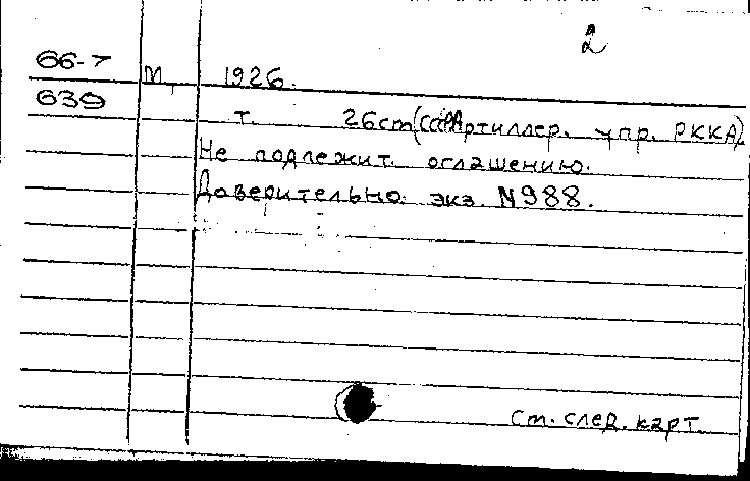 2
66-7
М, 1926.
639
т. 26cm (СССР. Артиллер. упр. РККА).
Не подлежит оглашению.
Доверительно. экз. №988.
см. след. карт.